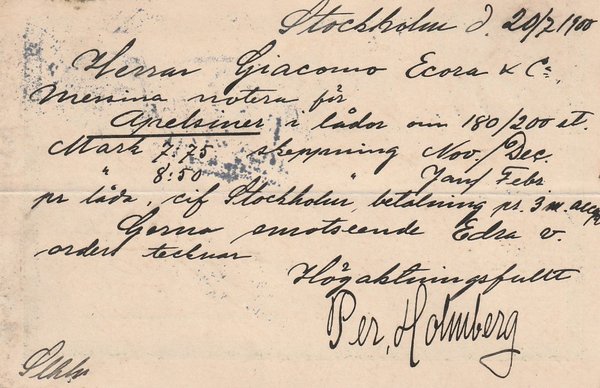 Stockholm d. 20/7 1900
Herrar Giacomo Ecora & Co.
Messina notera för
Apelsiner i lådor om 180/200 st.
Mark 7:75 skeppning Nov./Dec.
" 8:50 " Jan/Febr
pr låda, cif Stockholm, betalning pr. 3 m. acc
Gerna emotseende Edra v.
order tecknar
Högaktningsfullt
Per, Holmberg
Sthlm